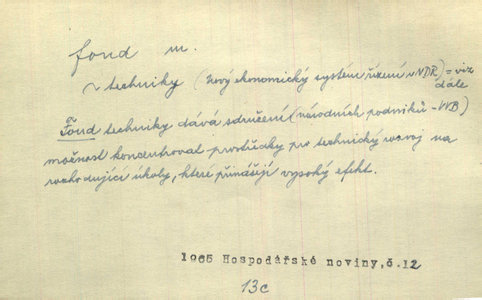 fond m.
~ techniky (Nový ekonomický systém řízení v NDR) = viz
dále
Fond techniky dává sdružení (národních podniků - VVB)
možnost koncentrovat prostředky pro technický rozvoj na
rozhodující úkoly, které přinášejí vysoký efekt.
1965 Hospodářské noviny, č.12
13c